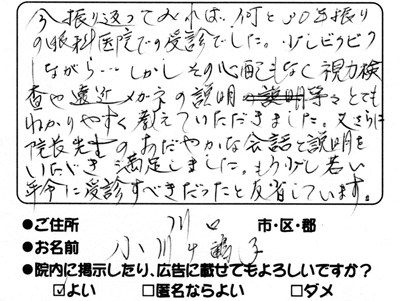 今振り返ってみれば、何と30年振り
の眼科医院での受診でした。少しビクビク
しながら…しかしその心配もなく視力検
査や遠近メガネの説明等々とても
わかりやすく教えていただきました。又さらに
院長先生のおだやかな会話と説明を
いただき満足しました。もう少し若い
年令に受診すべきだったと反省しています。
●ご住所 川口 市・区・郡
●お名前 小川 千鶴子
●院内に掲示したり、広告に載せてもよろしいですか？
☑よい □匿名ならよい □ダメ